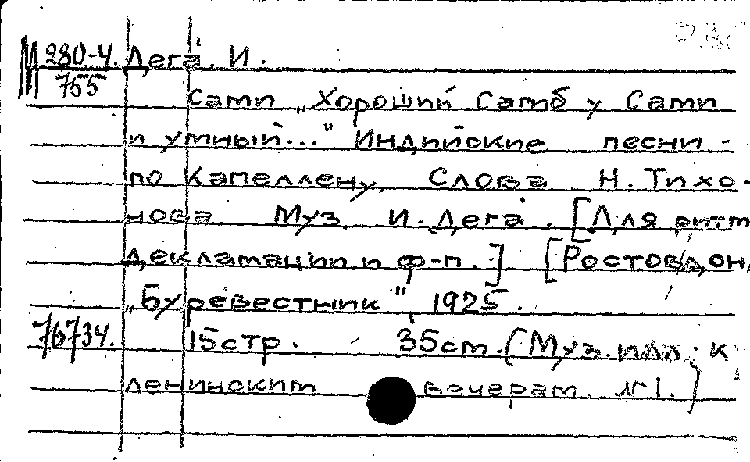 М 280-4. Дега И.
755
Сами „Хороший Самб у Сами
и умный..." Индийские песни -
по Капеллену. Слова Н. Тихо-
нова Муз. И. Дега. [Для ритм
декламации и ф-п.] [Ростов/Дон,
„Буревестник", 1925.
76734. 15стр. 35см. (Муз. илл. к
ленинским вечерам №1.)